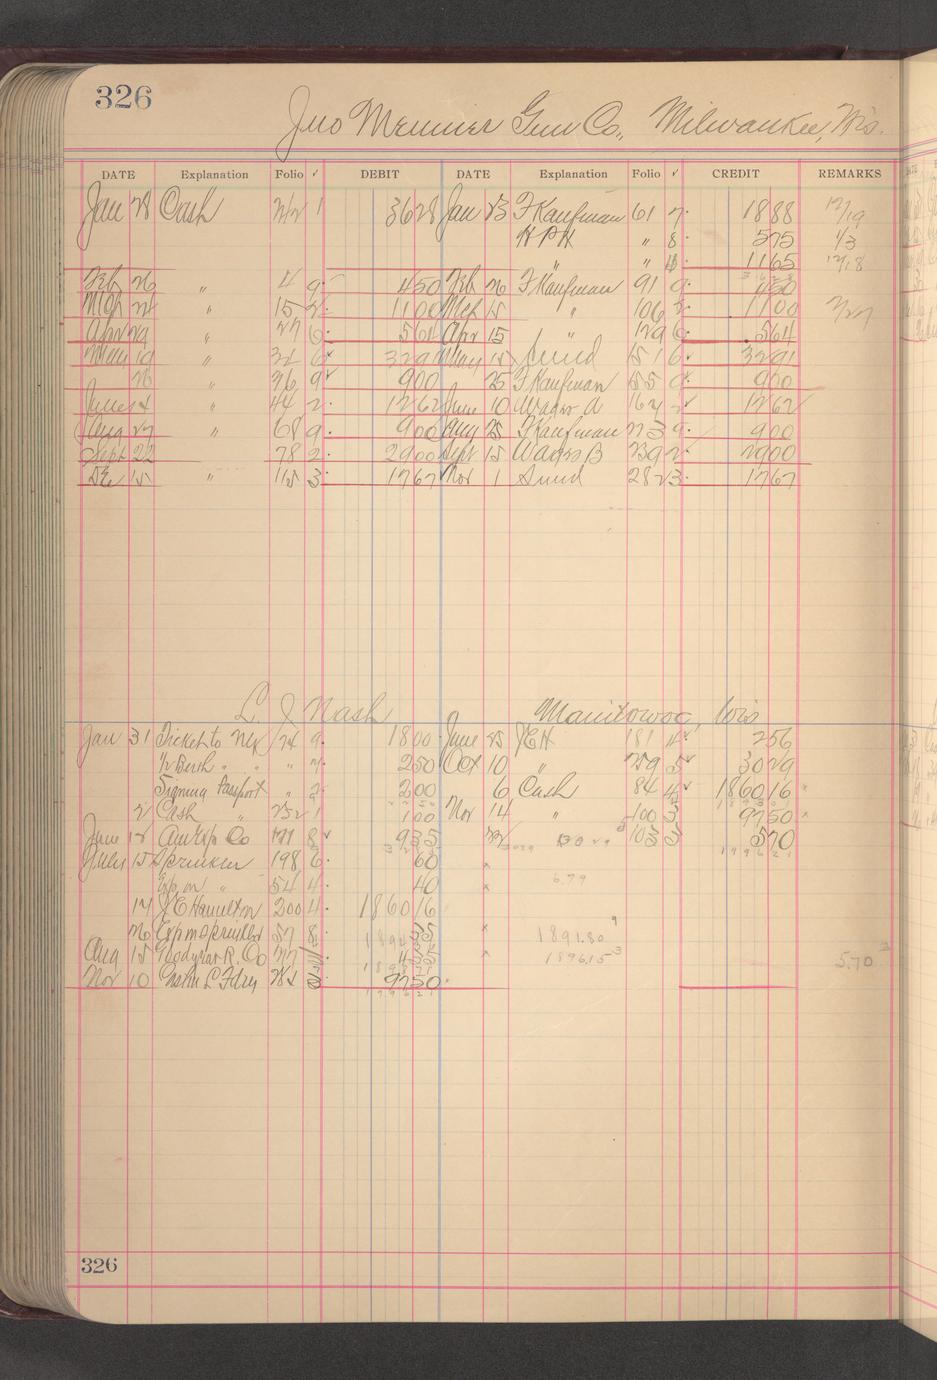 326
Jno Meunier Gun Co., Milwaukee, Wis.
DATE Explanation Folio ✓ DEBIT DATE Explanation Folio ✓ CREDIT REMARKS
Jan 28 Cash 1 3628 Jan 23 F Kaufman 61 7 1888 12/19
H P H " 8 575 1/3
" " 1165 12/18
Feb 26 " 4 9 450 Feb 26 F Kaufman 91 9 450
Mch 24 " 15 2 1100 Mch 15 " 106 2 1100 2/27
Apr 29 " 27 6 564 Apr 15 " 129 6 564
May 19 " 32 6 3291 May 15 Sund 151 6 3291
26 " 36 9 900 25 F Kaufman 155 9 900
June 14 " 44 2 1262 June 10 Wadsr A 164 2 1262
Aug 27 " 68 9 900 Aug 25 F Kaufman 223 9 900
Sept 22 78 2 2900 Sept 15 Wadsr B 239 2 2900
Dec 15 " 115 3 1767 Nov 1 Sund 282 3 1767
L. J. Nash Manitowoc, Wis
Jan 31 Ticket to 124 9 1800 June 25 J E H 181 4 256
1/2 Berth " " " 2 250 Oct 10 " 259 5 3029
Signing Passport " 2 200 6 Cash 84 4 186016
2 Cash 252 1 100 Nov 14 " 100 3 9750
June 12 Am Exp Co 171 8 935 103 3 570
July 15 Sprinkler 198 6 60
Exp on " 54 4 40 6.79
17 J E Hamilton 200 4 186016
26 Exp on sprinkler 57 8 35 1891.80
Aug 15 Goodyear R. Co 77 435 1896.15 5.70
Nov 10 3 9750
326